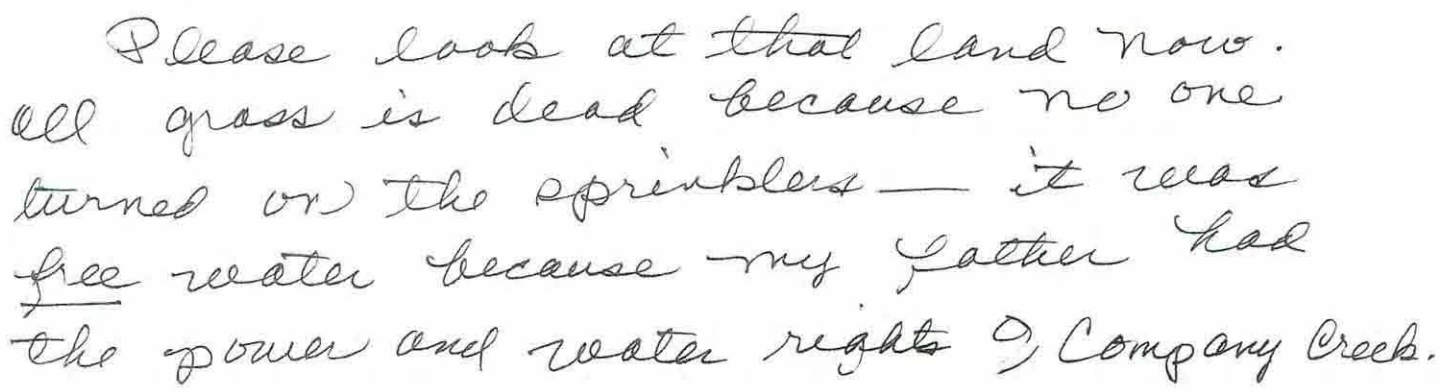 Please look at that land now.
All grass is dead because no one
turned on the sprinklers — it was
free water because my father had
the power and water rights of Company Creek.